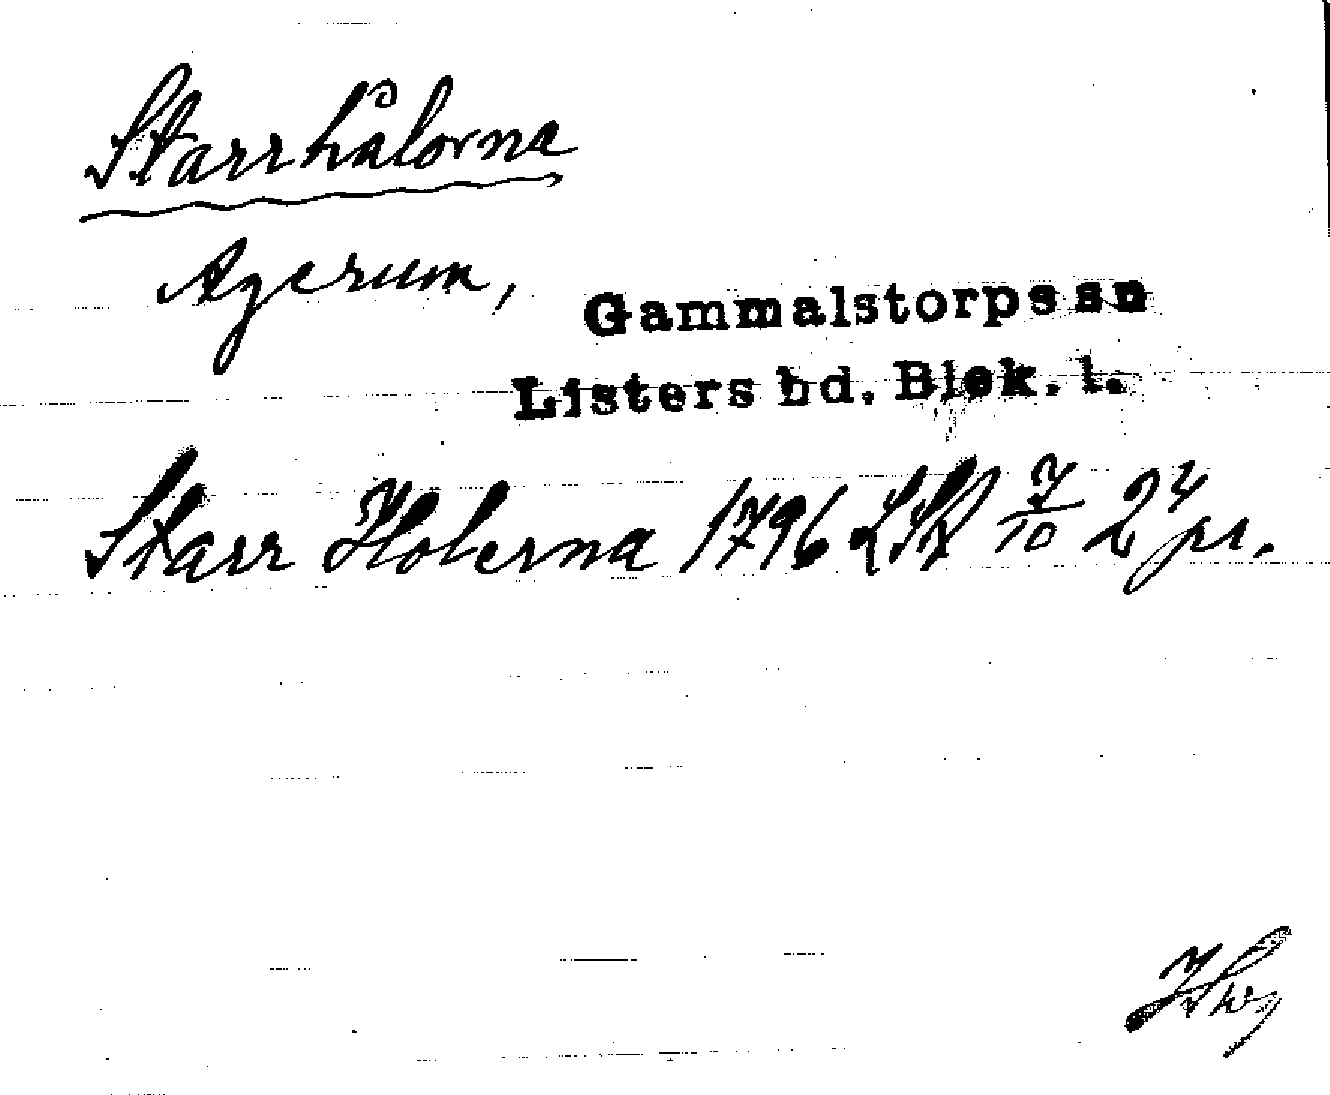 Starrhålorna
Agerum,
Gammalstorps sn
Listers hd. Blek. l.
Starr Holerna 1796 LSA 7/10 24 pr.